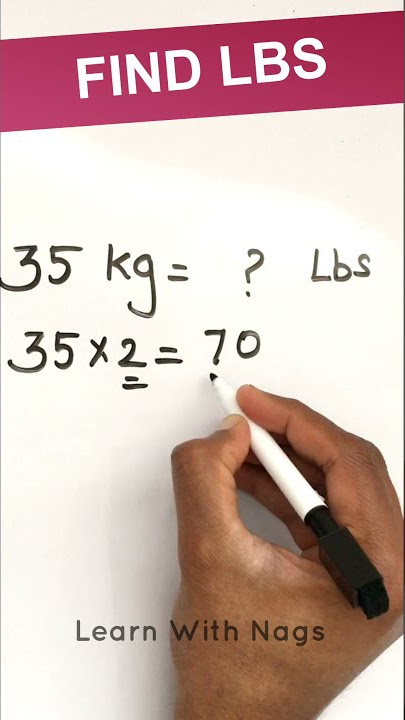 FIND LBS
35 kg = ? Lbs
35 × 2 = 70
Learn With Nags